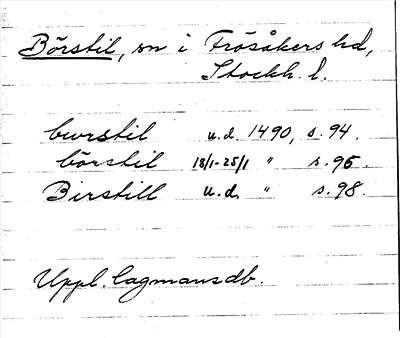 Börstil, sn i Frösåkers hd,
Stockh. l.
burstil u.d. 1490, s. 94.
börstil 18/1-25/1 " s. 95.
Birstill u.d. " s. 98.
Uppl. lagmansdb.